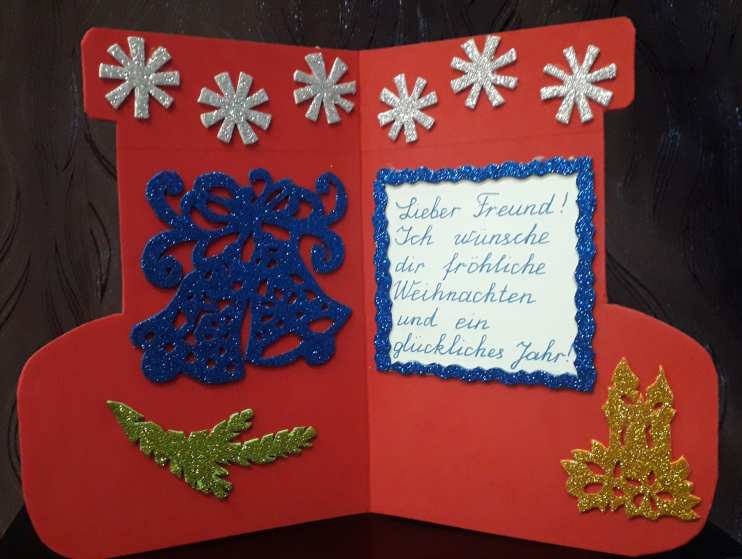 Lieber Freund!
Ich wünsche
dir fröhliche
Weihnachten
und ein
glückliches Jahr!